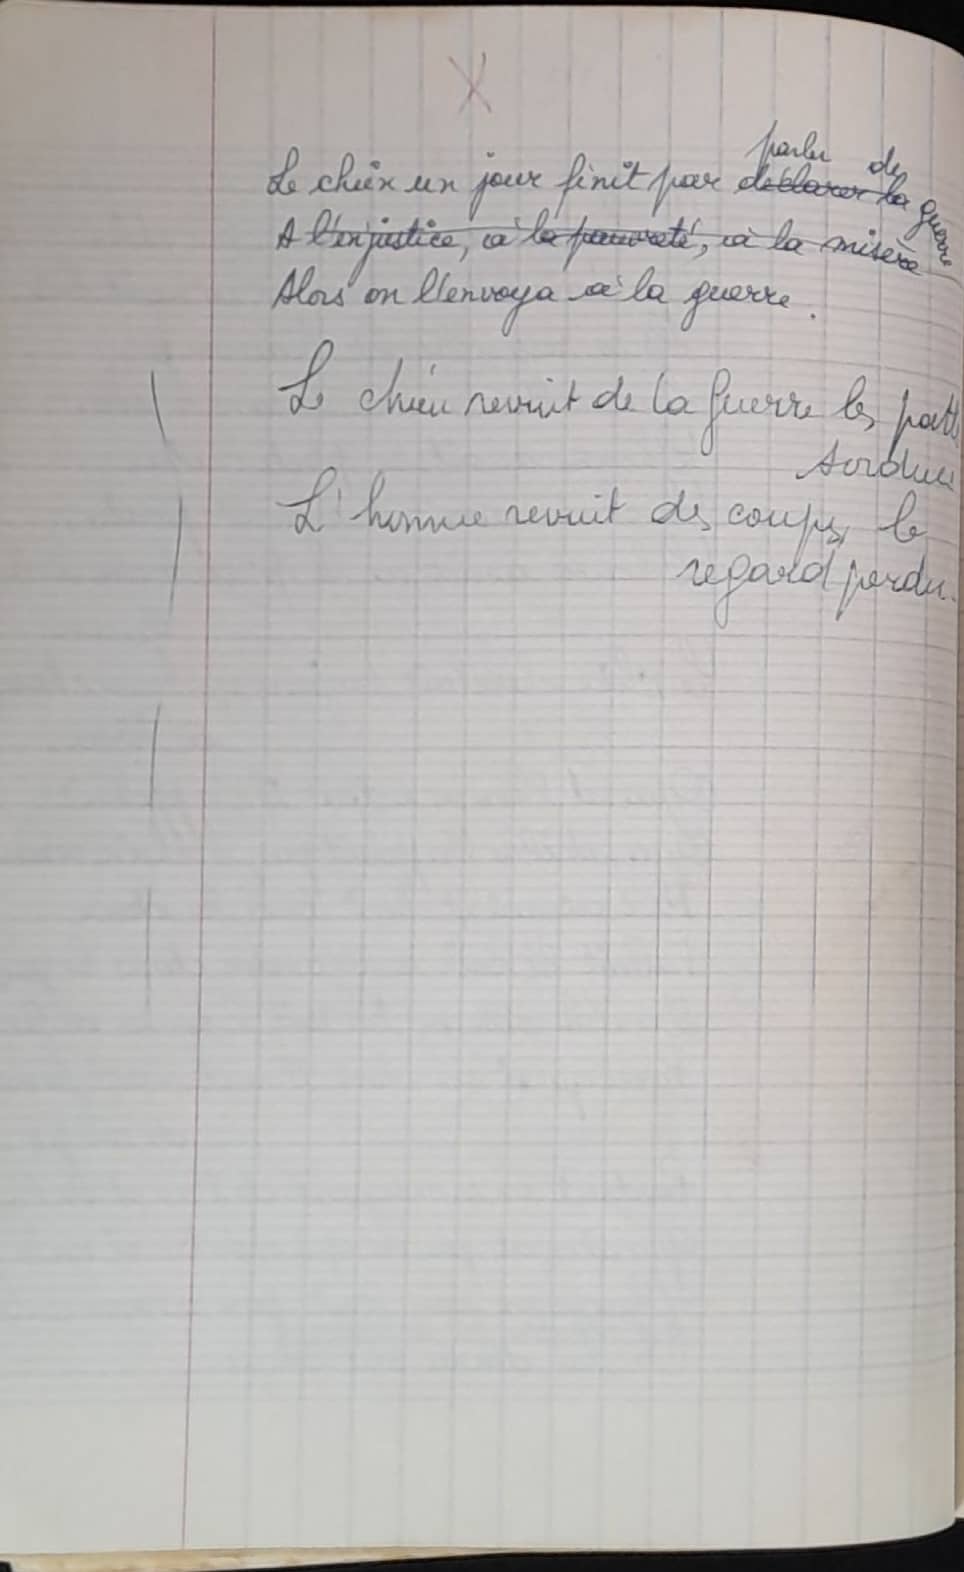 X
parler de
Le chien un jour finit par declarer la guerre
A l'injustice, à la pauvreté, à la misère
Alors on l'envoya à la guerre.
Le chien revint de la guerre les patt
tordues
L'homme revint des coups, le
regard perdu.